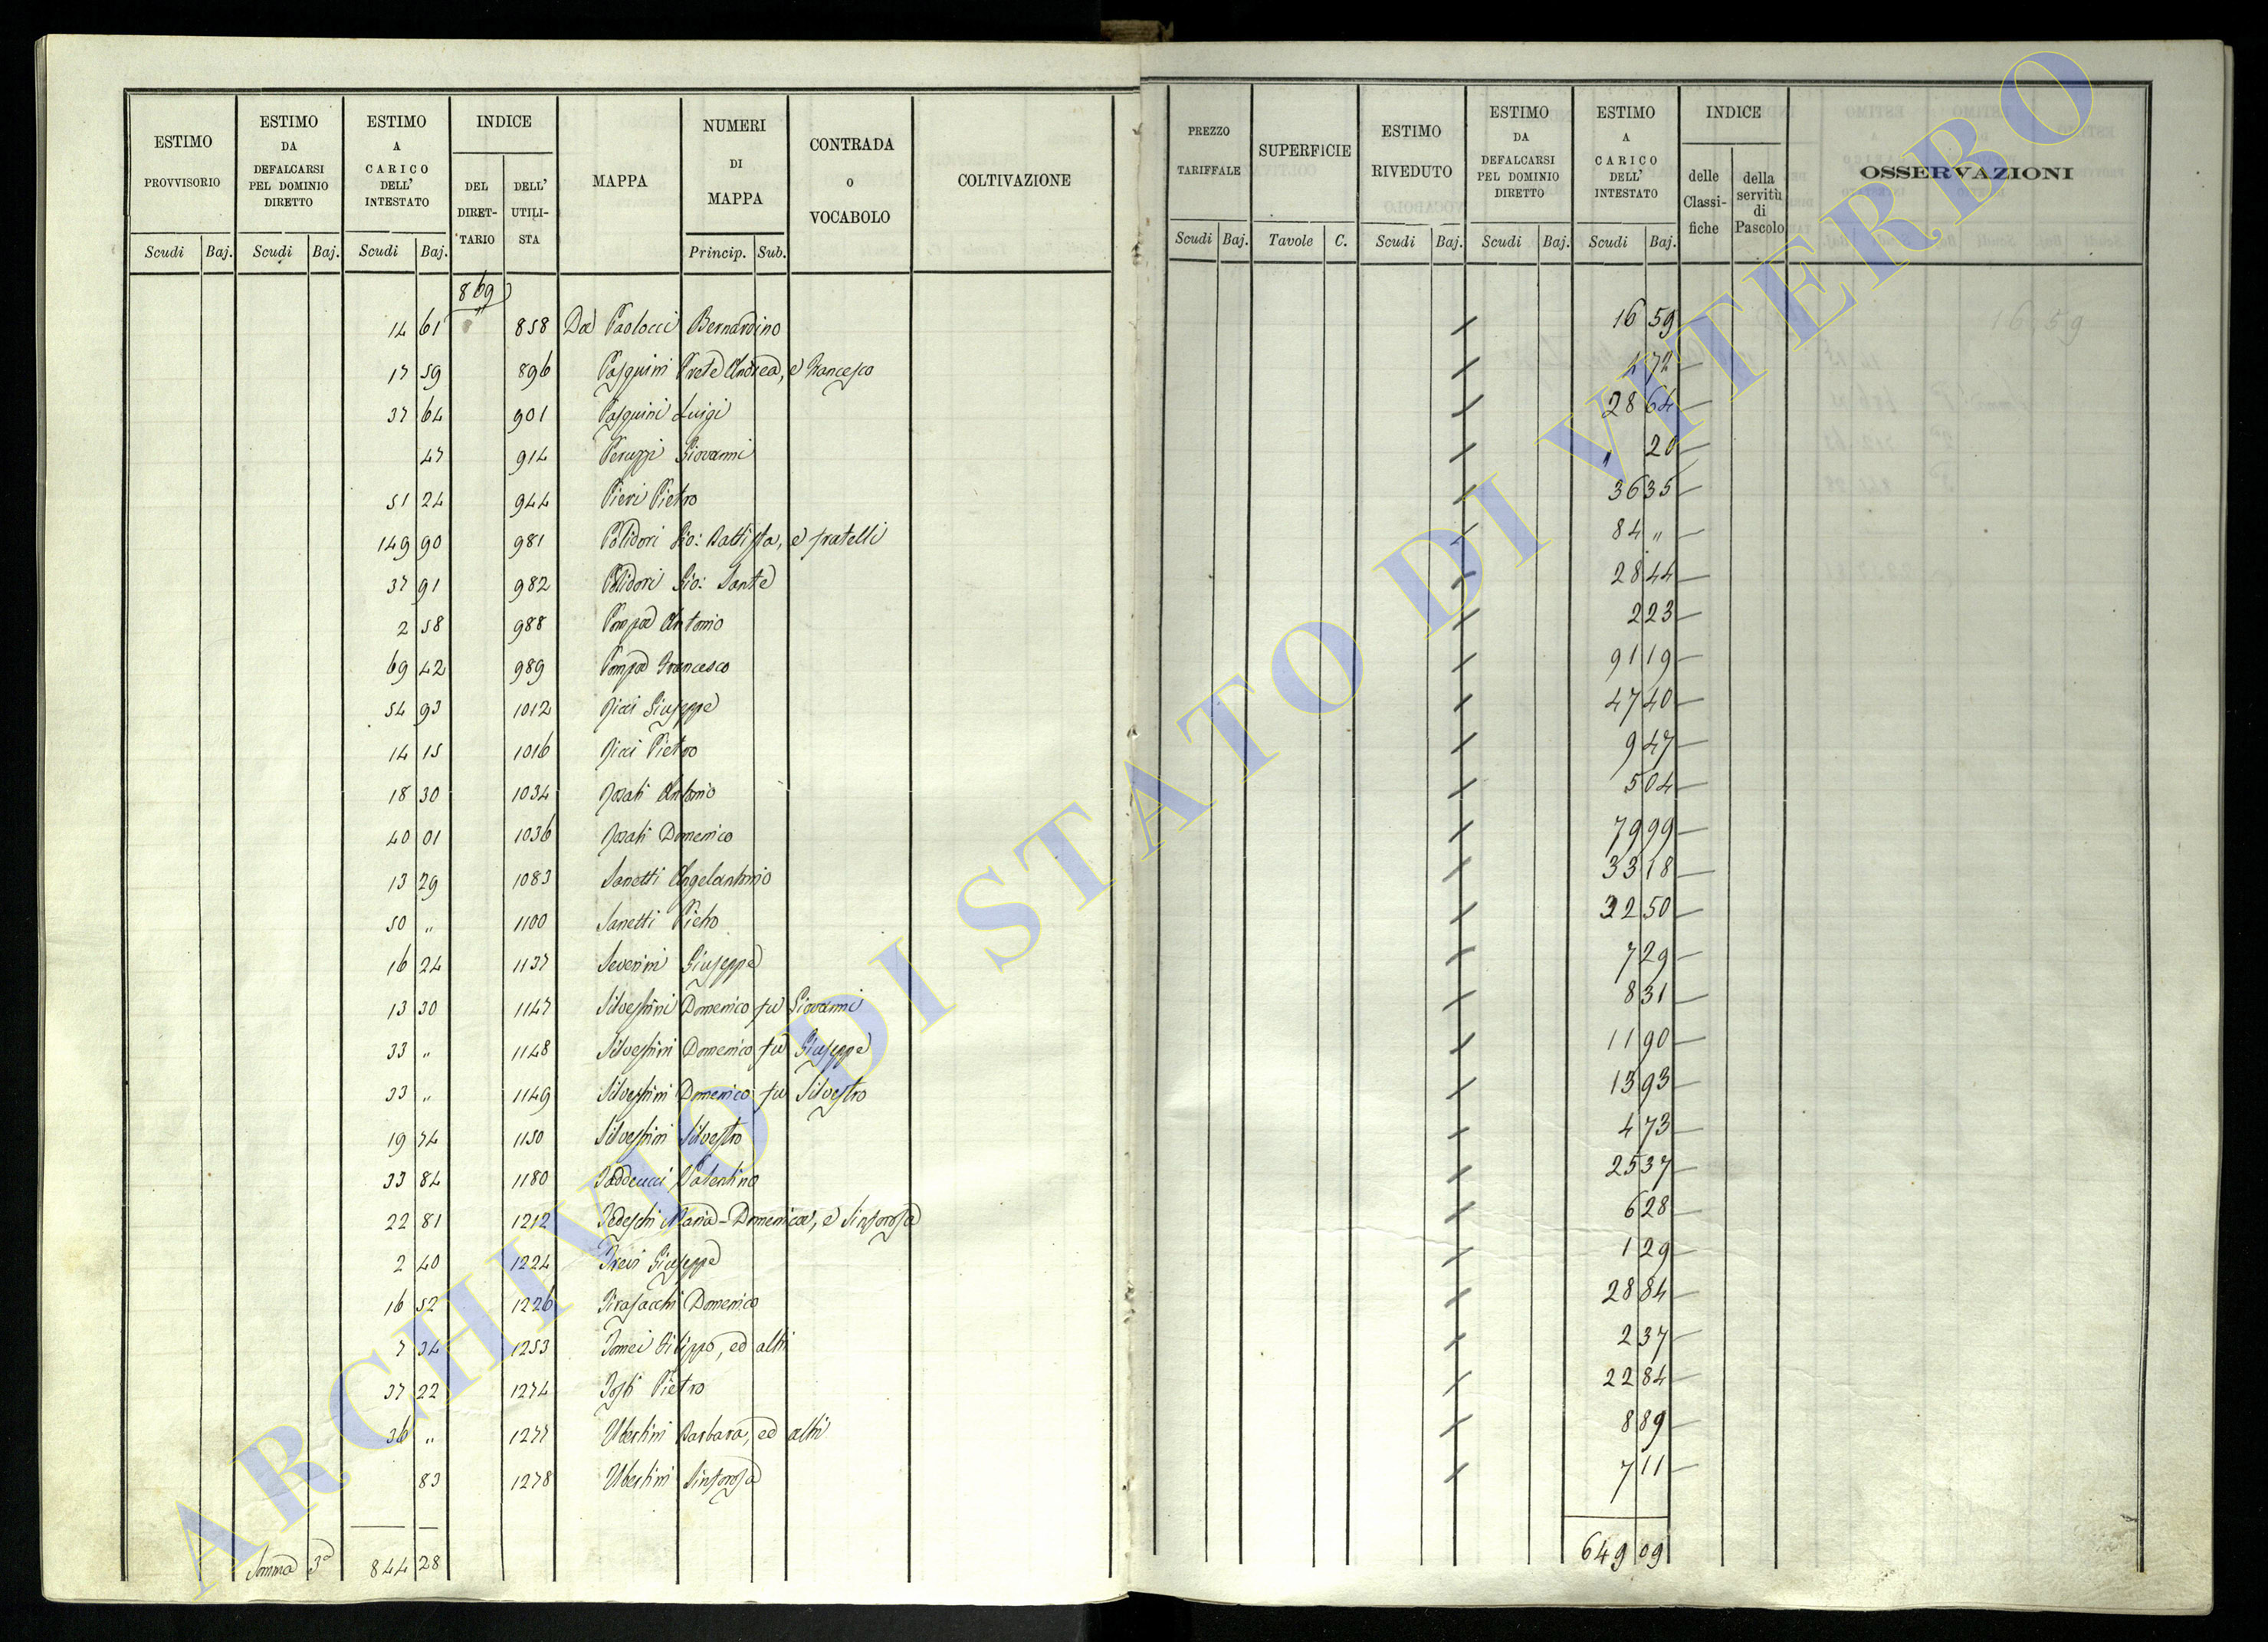 ESTIMO PROVVISORIO | ESTIMO DA DEFALCARSI PEL DOMINIO DIRETTO | ESTIMO A CARICO DELL' INTESTATO | INDICE DEL DIRETTARIO | DELL' UTILISTA | MAPPA | NUMERI DI MAPPA | CONTRADA O VOCABOLO | COLTIVAZIONE | PREZZO TARIFFALE | SUPERFICIE | ESTIMO RIVEDUTO | ESTIMO DA DEFALCARSI PEL DOMINIO DIRETTO | ESTIMO A CARICO DELL' INTESTATO | INDICE delle Classifiche | della servitù di Pascolo | OSSERVAZIONI
Scudi Baj. Scudi Baj. Scudi Baj. Princip. Sub. Scudi Baj. Tavole C. Scudi Baj. Scudi Baj. Scudi Baj.
869
14 61 858 Da Paolocci Bernardino 16 59
17 59 896 Pasquini Prete Andrea, e Francesco 1 72
37 64 901 Pasquini Luigi 28 64
47 914 Peruzzi Giovanni " 20
51 24 944 Pieri Pietro 36 35
149 90 981 Polidori Gio: Battista, e fratelli 84 "
37 91 982 Polidori Gio: Sante 28 44
2 58 988 Pompa Antonio 2 23
69 42 989 Pompa Francesco 91 19
54 93 1012 Ricci Giuseppe 47 40
14 15 1016 Ricci Pietro 9 47
18 30 1034 Rosati Antonio 5 04
40 01 1036 Rosati Domenico 79 99
13 29 1083 Sanetti Angelantonio 33 18
50 " 1100 Sanetti Pietro 32 50
16 24 1137 Severini Giuseppe 7 29
13 30 1147 Silvestrini Domenico fu Giovanni 8 31
33 " 1148 Silvestrini Domenico fu Giuseppe 11 90
33 " 1149 Silvestrini Domenico fu Silvestro 13 93
19 74 1150 Silvestrini Silvestro 4 73
33 84 1180 Taddeucci Valentino 25 37
22 81 1212 Tedeschi Maria-Domenica, e Sinforosa 6 28
2 40 1224 Giuseppe 1 29
16 52 1226 Tirasacchi Domenico 28 84
7 34 1253 Tomei Filippo, ed altri 2 37
37 22 1274 Tosti Pietro 22 84
36 " 1277 Ubertini Barbara, ed altri 8 89
83 1278 Ubertini Sinforosa 7 11
Somma 3a 844 28 649 09
ARCHIVIO DI STATO DI VITERBO